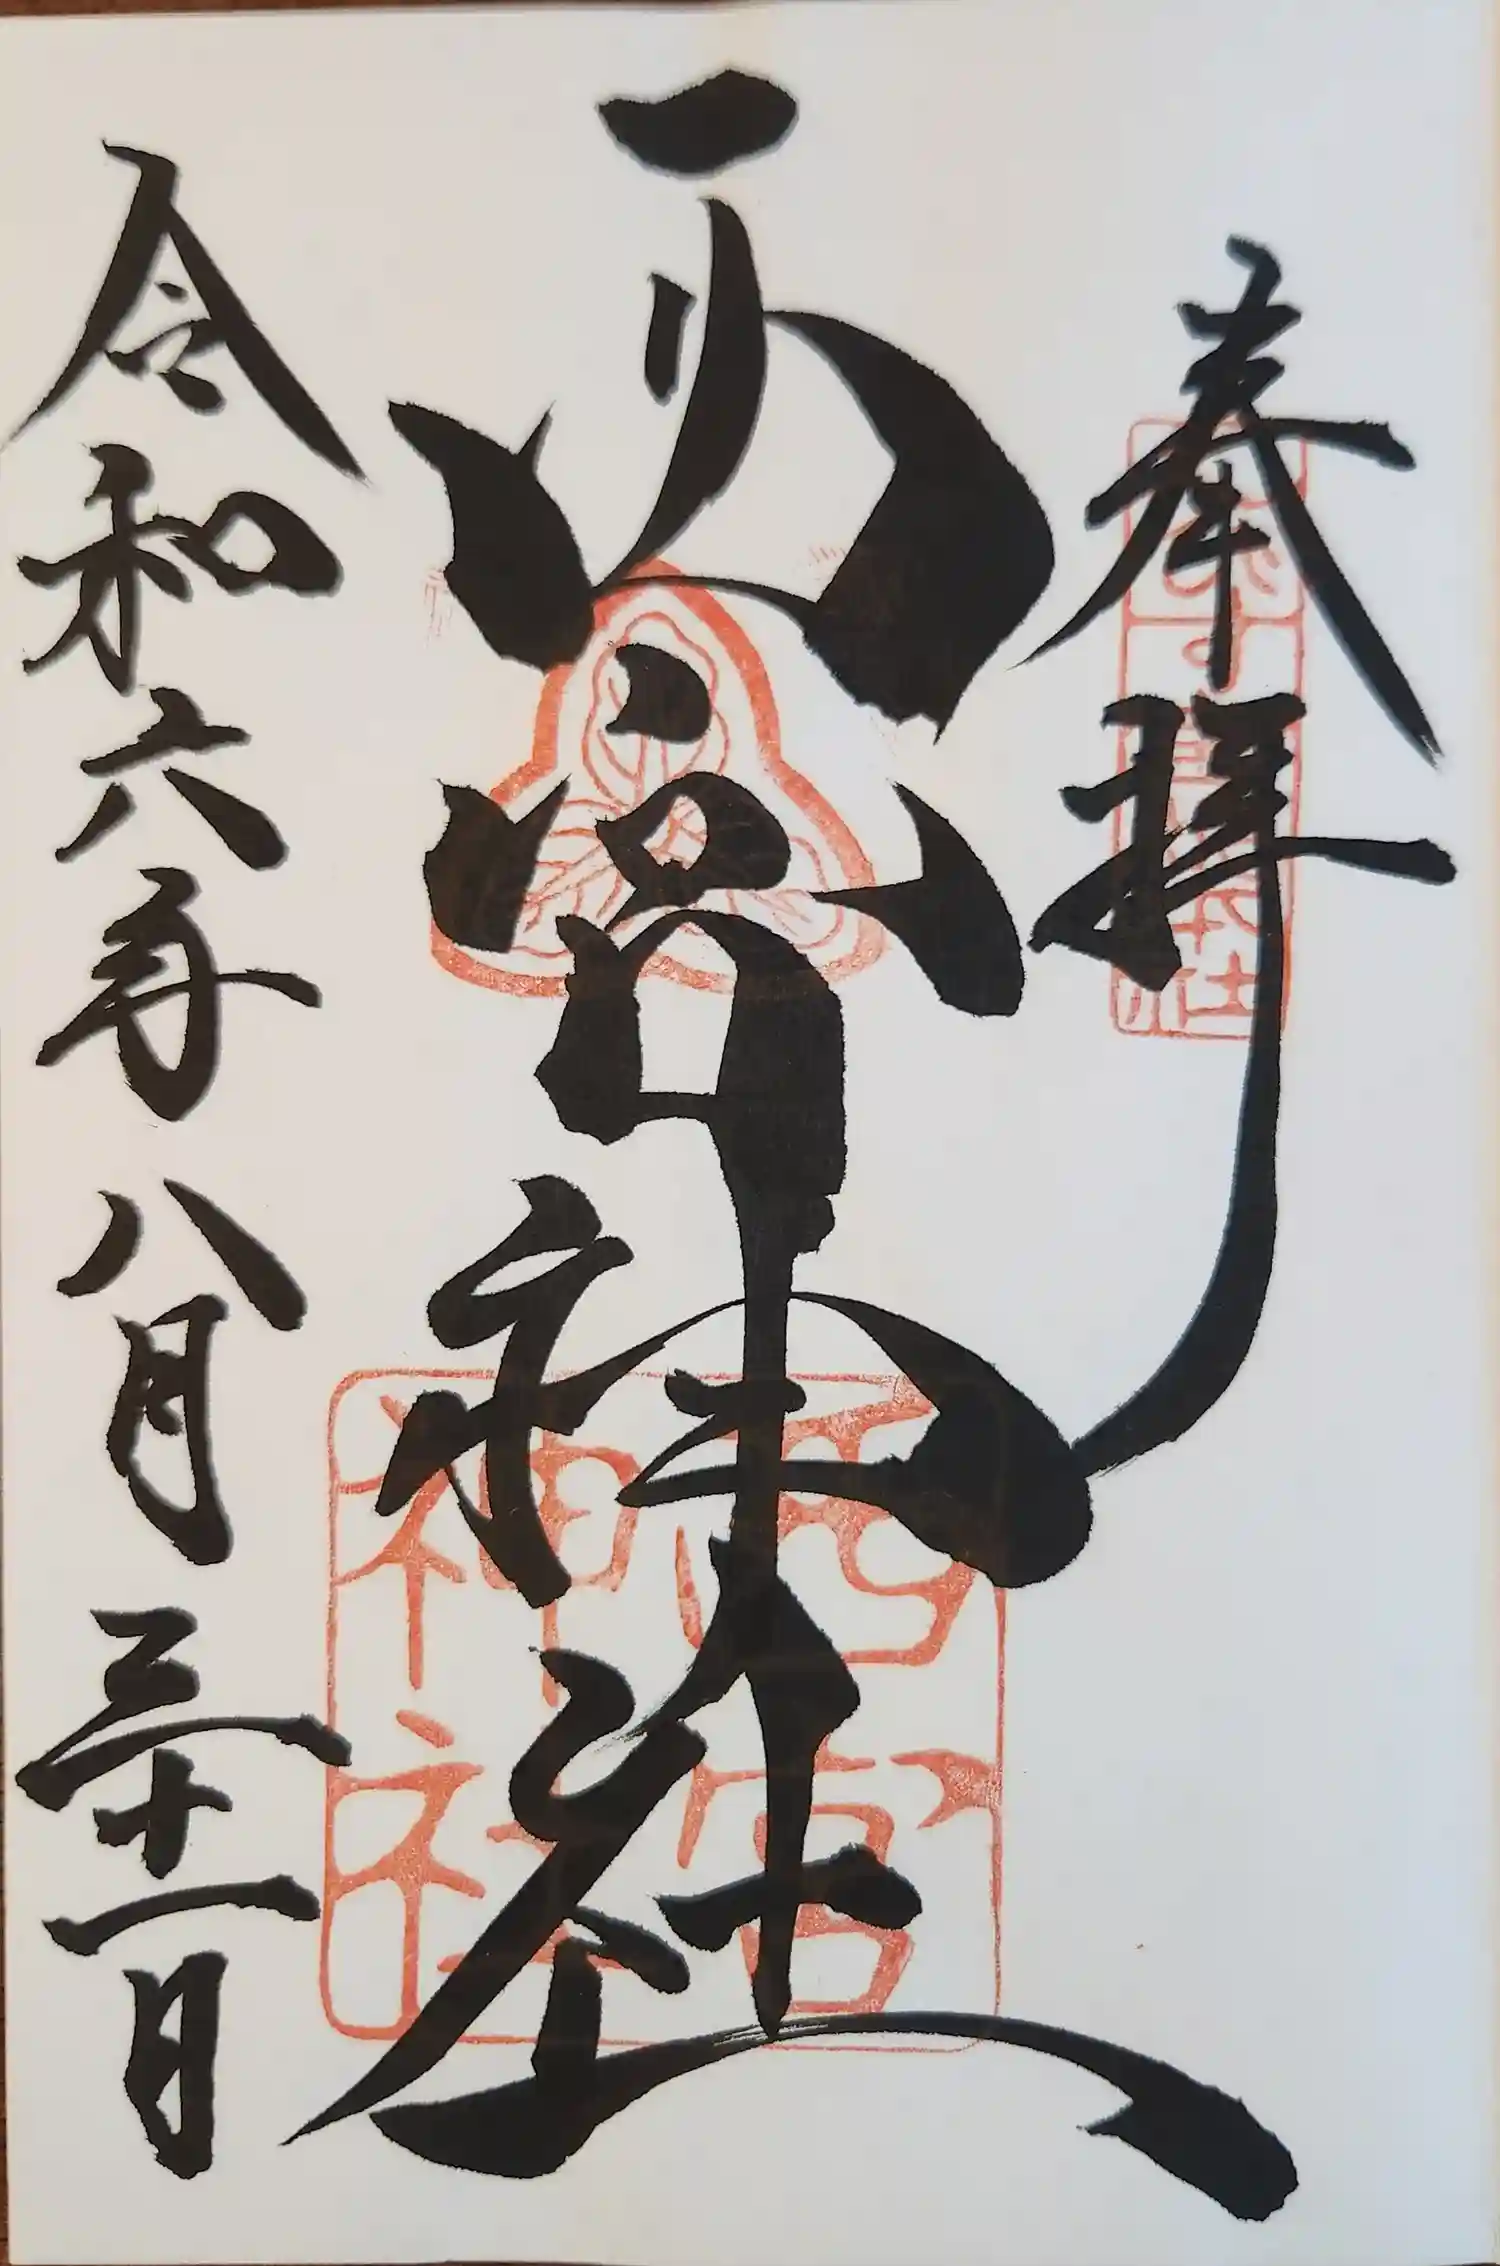 奉拝
西宮神社
令和六年八月三十一日
西宮
神社